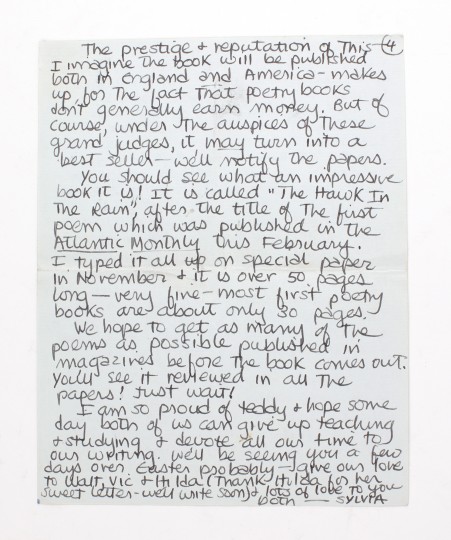 The prestige & reputation of This — 4
I imagine the book will be published
both in England and America - makes
up for the fact that poetry books
don't generally earn money. But of
course, under the auspices of These
grand judges, it may turn into a
best seller - we'll notify the papers.
You should see what an impressive
book it is! It is called "The Hawk In
The Rain", after the title of the first
poem which was published in the
Atlantic Monthly this February.
I typed it all up on special paper
in November & it is over 50 pages
long - very fine - most first poetry
books are about only 30 pages.
We hope to get as many of the
poems as possible published in
magazines before the book comes out.
You'll see it reviewed in all the
papers! Just wait!
I am so proud of teddy & hope some
day both of us can give up teaching
& studying & devote all our time to
our writing. we'll be seeing you a few
days over Easter probably - give our love
to Walt, Vic & Hilda (Thank Hilda for her
sweet letter - we'll write soon) & lots of love to you
both — SYLVIA